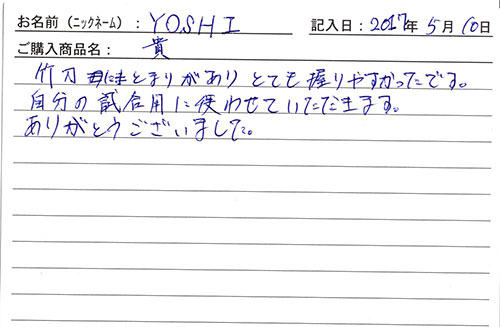 お名前（ニックネーム）：YOSHI 記入日：2017年5月10日
ご購入商品名：貴
竹刀にまとまりがありとても握りやすかったです。
自分の試合用に使わせていただきます。
ありがとうございました。